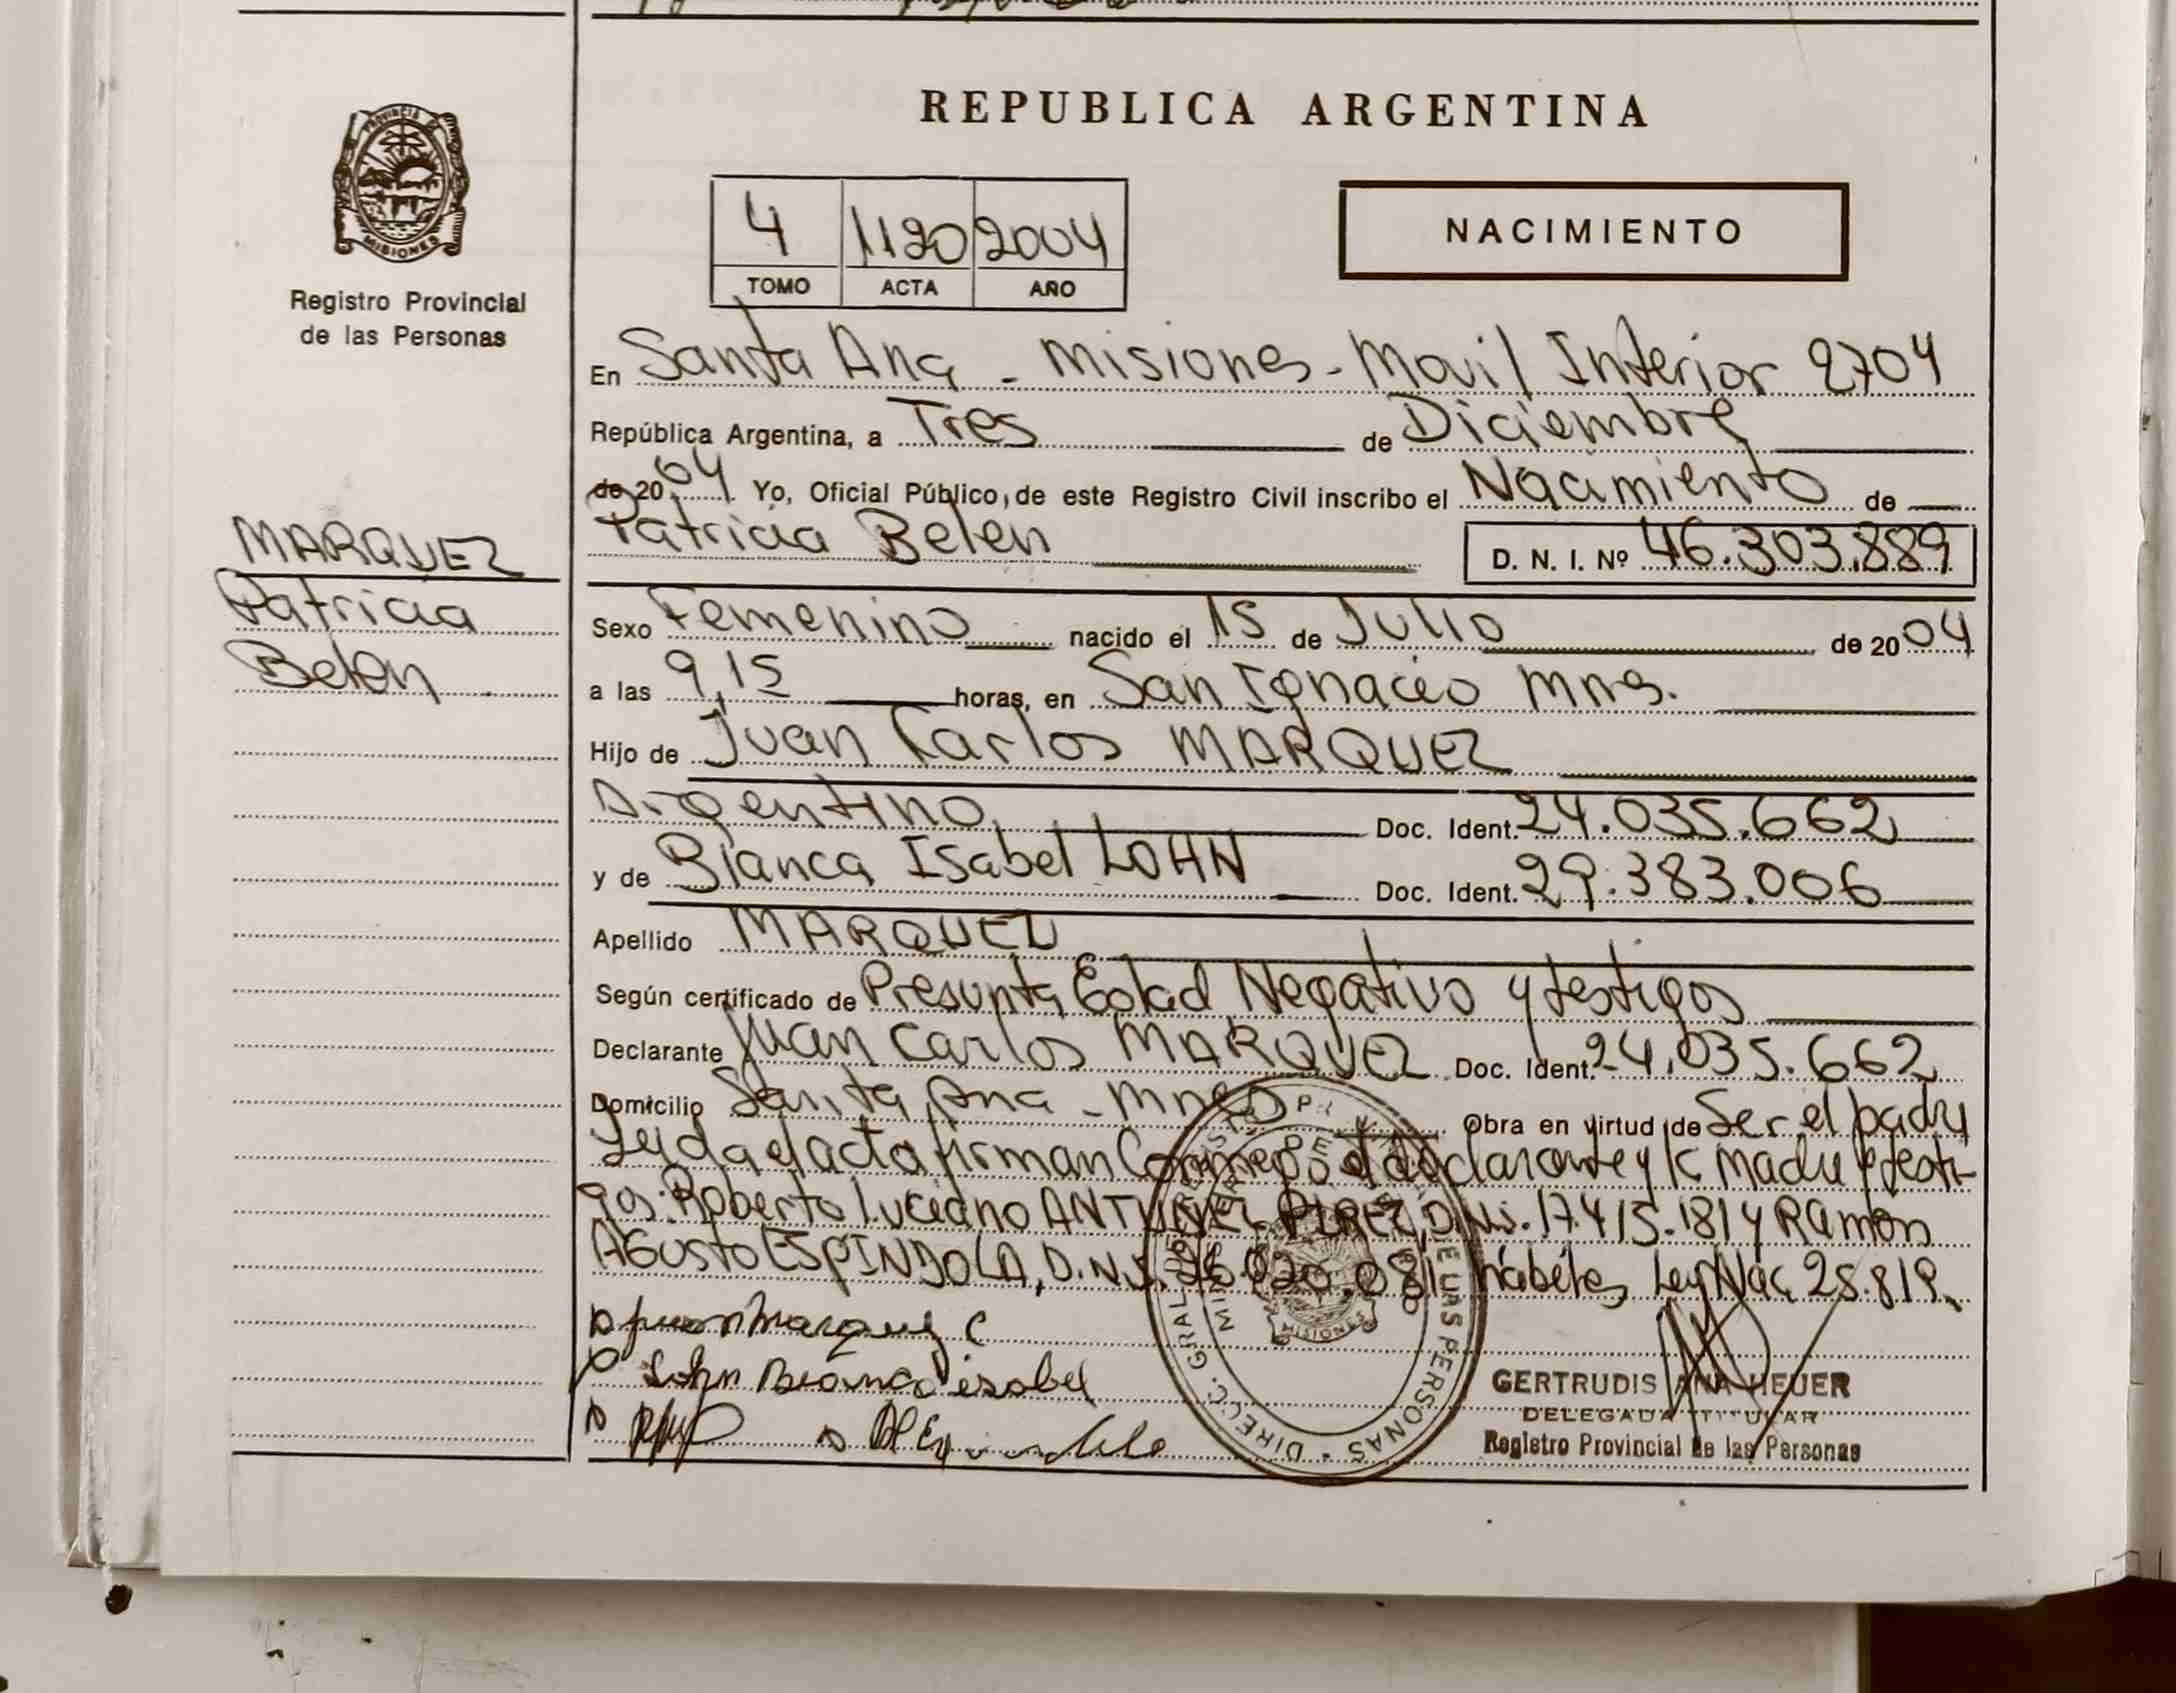 REPUBLICA ARGENTINA
PROVINCIA DE
MISIONES
Registro Provincial
de las Personas
4 1120 2004
TOMO ACTA AÑO
NACIMIENTO
En Santa Ana - Misiones - Movil Interior 2704
República Argentina, a Tres de Diciembre
de 2004 Yo, Oficial Público, de este Registro Civil inscribo el Nacimiento de
Patricia Belen D. N. I. Nº 46.303.889
MARQUEZ
Patricia
Belen
Sexo Femenino nacido el 15 de Julio de 2004
a las 9,15 horas, en San Ignacio Mnes.
Hijo de Juan Carlos MARQUEZ
Argentino Doc. Ident. 24.035.662
y de Blanca Isabel LOHN Doc. Ident. 29.383.006
Apellido MARQUEZ
Según certificado de Presunta Edad Negativo y testigos
Declarante Juan Carlos MARQUEZ Doc. Ident. 24.035.662
Domicilio Santa Ana - Mnes Obra en virtud de Ser el padre
Leida el acta firman Conmigo el declarante y la madre y testi
gos: Roberto Luciano ANTUNEZ PEREZ, D.N.i. 17.415.181 y Ramón
AGusto ESPINDOLA, D.N.i. 26.020.081 habiles Ley Nac 25.819.
Juan Marquez C
Lohn Blanca isabel
GERTRUDIS ANA HEUER
DELEGADA TITULAR
Registro Provincial de las Personas